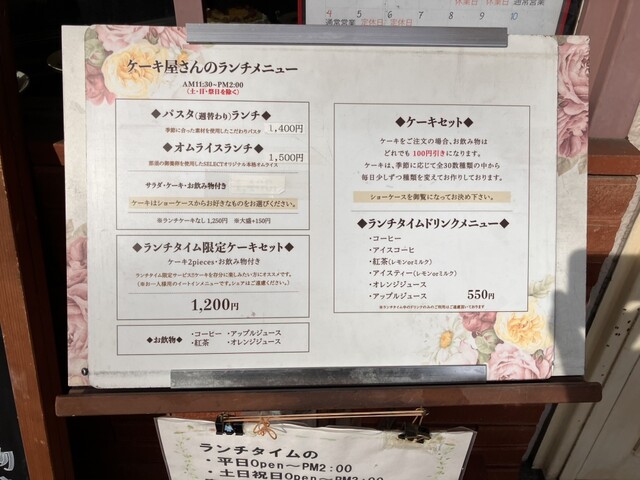 休業日 休業日 通常営業
4 5 6 7 8 9 10
通常営業 定休日 定休日
ケーキ屋さんのランチメニュー
AM11:30~PM2:00
(土・日・祭日を除く)
◆パスタ(週替わり)ランチ◆
季節に合った素材を使用したこだわりパスタ
1,400円
◆オムライスランチ◆
1,500円
サラダ・ケーキ・お飲み物付き
ケーキはショーケースからお好きなものをお選びください。
※ランチケーキなし 1,250円 ※大盛+150円
◆ランチタイム限定ケーキセット◆
ケーキ2pieces・お飲み物付き
ランチタイム限定サービス!!ケーキを存分に楽しみたい方にオススメです。
(※お一人様用のイートインメニューです。シェアはご遠慮ください。)
1,200円
◆お飲物◆
・コーヒー ・アップルジュース
・紅茶 ・オレンジジュース
◆ケーキセット◆
ケーキをご注文の場合、お飲み物は
どれでも 100円引きになります。
ケーキは、季節に応じて全30数種類の中から
毎日少しずつ種類を変えてお作りしております。
ショーケースを御覧になってお決め下さい。
◆ランチタイムドリンクメニュー◆
・コーヒー
・アイスコーヒ
・紅茶(レモンorミルク)
・アイスティー(レモンorミルク)
・オレンジジュース
・アップルジュース 550円
※ランチタイム中のドリンクのみのご利用はご遠慮頂いております
ランチタイムの
・平日Open~PM2:00
・土日祝日Open~PM